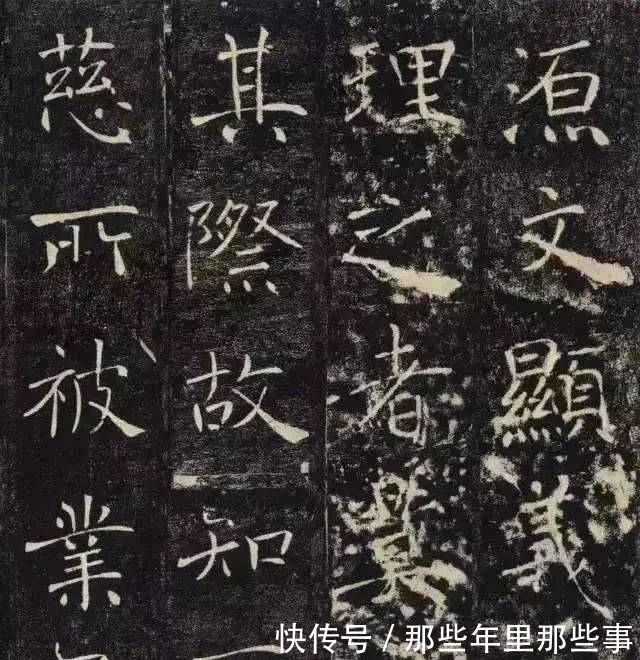 源文顯義
理之者莫
其際故知
慈所被業
快传号 / 那些年里那些事